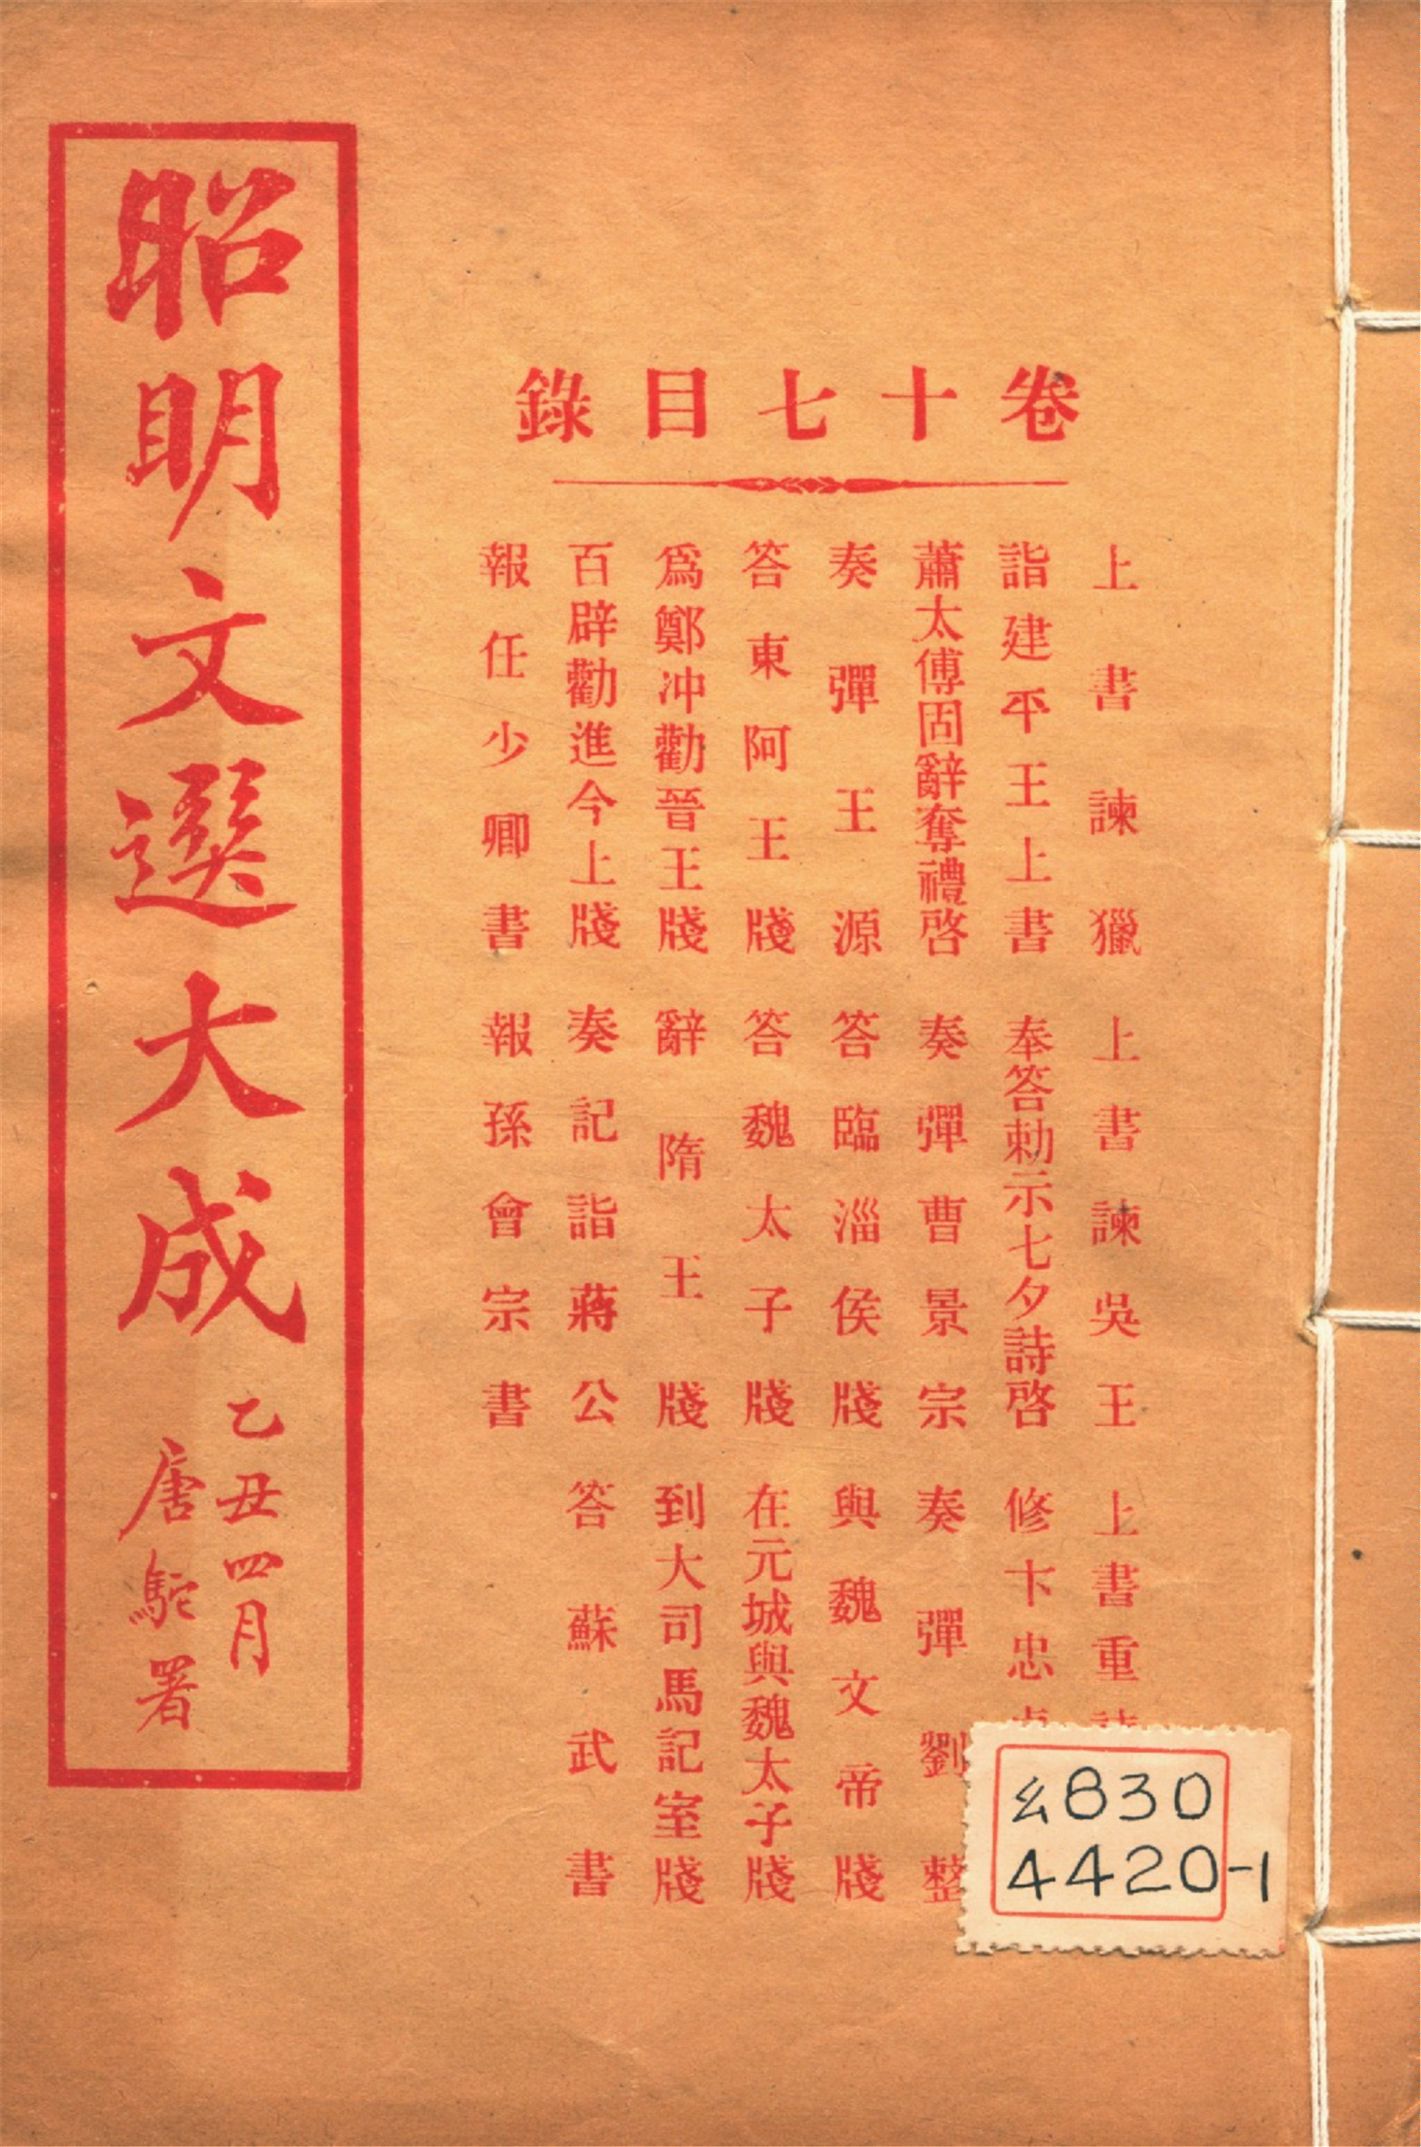 卷十七目錄
上書諫獵 上書諫吳王 上書重
詣建平王上書 奉答勅示七夕詩啓 修卞忠
蕭太傅固辭奪禮啓 奏彈曹景宗 奏彈劉整
奏彈王源 答臨淄侯牋 與魏文帝牋
答東阿王牋 答魏太子牋 在元城與魏太子牋
爲鄭冲勸晉王牋 辭隋王牋 到大司馬記室牋
百辟勸進今上牋 奏記詣蔣公 答蘇武書
報任少卿書 報孫會宗書
昭明文選大成
乙丑四月
唐駝署
830
4420-1